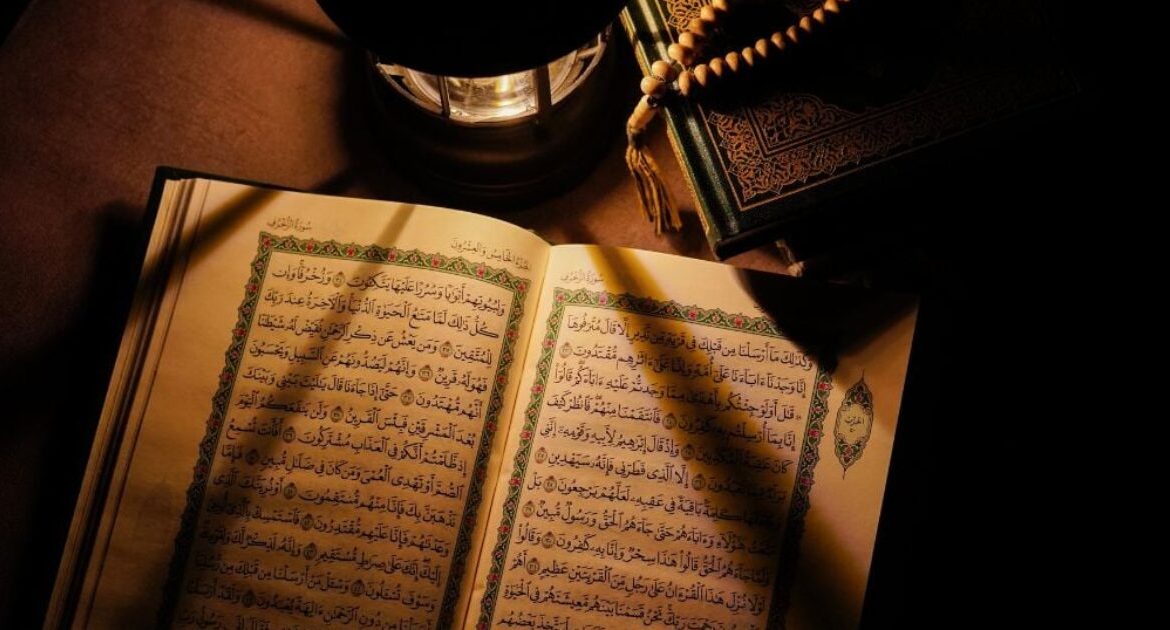 سُورَةُ الزُّخْرُفِ
وَكَذَٰلِكَ مَآ أَرْسَلْنَا مِن قَبْلِكَ فِي قَرْيَةٍ مِّن نَّذِيرٍ إِلَّا قَالَ مُتْرَفُوهَآ
إِنَّا وَجَدْنَآ ءَابَآءَنَا عَلَىٰٓ أُمَّةٍ وَإِنَّا عَلَىٰٓ ءَاثَٰرِهِم مُّقْتَدُونَ ٢٣
۞ قَٰلَ أَوَلَوْ جِئْتُكُم بِأَهْدَىٰ مِمَّا وَجَدتُّمْ عَلَيْهِ ءَابَآءَكُمْ قَالُوٓا۟
إِنَّا بِمَآ أُرْسِلْتُم بِهِۦ كَٰفِرُونَ ٢٤ فَٱنتَقَمْنَا مِنْهُمْ فَٱنظُرْ كَيْفَ
كَانَ عَٰقِبَةُ ٱلْمُكَذِّبِينَ ٢٥ وَإِذْ قَالَ إِبْرَٰهِيمُ لِأَبِيهِ وَقَوْمِهِۦٓ إِنَّنِي
بَرَآءٌ مِّمَّا تَعْبُدُونَ ٢٦ إِلَّا ٱلَّذِي فَطَرَنِي فَإِنَّهُۥ سَيَهْدِينِ ٢٧
وَجَعَلَهَا كَلِمَةًۢ بَاقِيَةً فِي عَقِبِهِۦ لَعَلَّهُمْ يَرْجِعُونَ ٢٨ بَلْ
مَتَّعْتُ هَٰٓؤُلَآءِ وَءَابَآءَهُمْ حَتَّىٰ جَآءَهُمُ ٱلْحَقُّ وَرَسُولٌ مُّبِينٌ ٢٩
وَلَمَّا جَآءَهُمُ ٱلْحَقُّ قَالُوا۟ هَٰذَا سِحْرٌ وَإِنَّا بِهِۦ كَٰفِرُونَ ٣٠ وَقَالُوا۟
لَوْلَا نُزِّلَ هَٰذَا ٱلْقُرْءَانُ عَلَىٰ رَجُلٍ مِّنَ ٱلْقَرْيَتَيْنِ عَظِيمٍ ٣١ أَهُمْ
يَقْسِمُونَ رَحْمَتَ رَبِّكَ نَحْنُ قَسَمْنَا بَيْنَهُم مَّعِيشَتَهُمْ فِي ٱلْحَيَوٰةِ
لِّيَتَّخِذَ بَعْضُهُم
الحزب
الجُزْءُ الخَامِسُ وَالعِشْرُونَ
سُورَةُ الزُّخْرُفِ
وَلِبُيُوتِهِمْ أَبْوَٰبًا وَسُرُرًا عَلَيْهَا يَتَّكِـُٔونَ ٣٤ وَزُخْرُفًا وَإِن
كُلُّ ذَٰلِكَ لَمَّا مَتَٰعُ ٱلْحَيَوٰةِ ٱلدُّنْيَا وَٱلْءَاخِرَةُ عِندَ رَبِّكَ
لِلْمُتَّقِينَ ٣٥ وَمَن يَعْشُ عَن ذِكْرِ ٱلرَّحْمَٰنِ نُقَيِّضْ لَهُۥ شَيْطَٰنًا
فَهُوَ لَهُۥ قَرِينٌ ٣٦ وَإِنَّهُمْ لَيَصُدُّونَهُمْ عَنِ ٱلسَّبِيلِ وَيَحْسَبُونَ
أَنَّهُم مُّهْتَدُونَ ٣٧ حَتَّىٰٓ إِذَا جَآءَنَا قَالَ يَٰلَيْتَ بَيْنِي وَبَيْنَكَ
بُعْدَ ٱلْمَشْرِقَيْنِ فَبِئْسَ ٱلْقَرِينُ ٣٨ وَلَن يَنفَعَكُمُ ٱلْيَوْمَ
إِذ ظَّلَمْتُمْ أَنَّكُمْ فِي ٱلْعَذَابِ مُشْتَرِكُونَ ٣٩ أَفَأَنتَ تُسْمِعُ
ٱلصُّمَّ أَوْ تَهْدِي ٱلْعُمْيَ وَمَن كَانَ فِي ضَلَٰلٍ مُّبِينٍ ٤٠ فَإِمَّا
نَذْهَبَنَّ بِكَ فَإِنَّا مِنْهُم مُّنتَقِمُونَ ٤١ أَوْ نُرِيَنَّكَ ٱلَّذِي
وَعَدْنَٰهُمْ فَإِنَّا عَلَيْهِم مُّقْتَدِرُونَ ٤٢ فَٱسْتَمْسِكْ بِٱلَّذِيٓ أُوحِيَ
إِلَيْكَ إِنَّكَ عَلَىٰ صِرَٰطٍ مُّسْتَقِيمٍ ٤٣ وَإِنَّهُۥ لَذِكْرٌ لَّكَ وَلِقَوْمِكَ
وَسَوْفَ تُسْـَٔلُونَ ٤٤ وَسْـَٔلْ مَنْ أَرْسَلْنَا مِن قَبْلِكَ مِن رُّسُلِنَآ
أَجَعَلْنَا مِن دُونِ ٱلرَّحْمَٰنِ ءَالِهَةً يُعْبَدُونَ ٤٥ وَلَقَدْ أَرْسَلْنَا